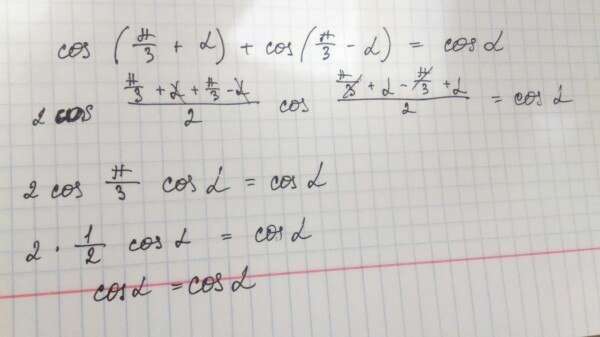 cos (π/3 + α) + cos (π/3 - α) = cos α
2 cos (π/3 + α + π/3 - α)/2 cos (π/3 + α - π/3 + α)/2 = cos α
2 cos π/3 cos α = cos α
2 · 1/2 cos α = cos α
cos α = cos α